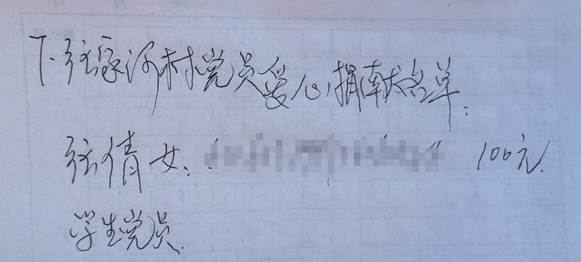 下张家河村党员爱心捐献名单:
张倩 女、 100元
学生党员